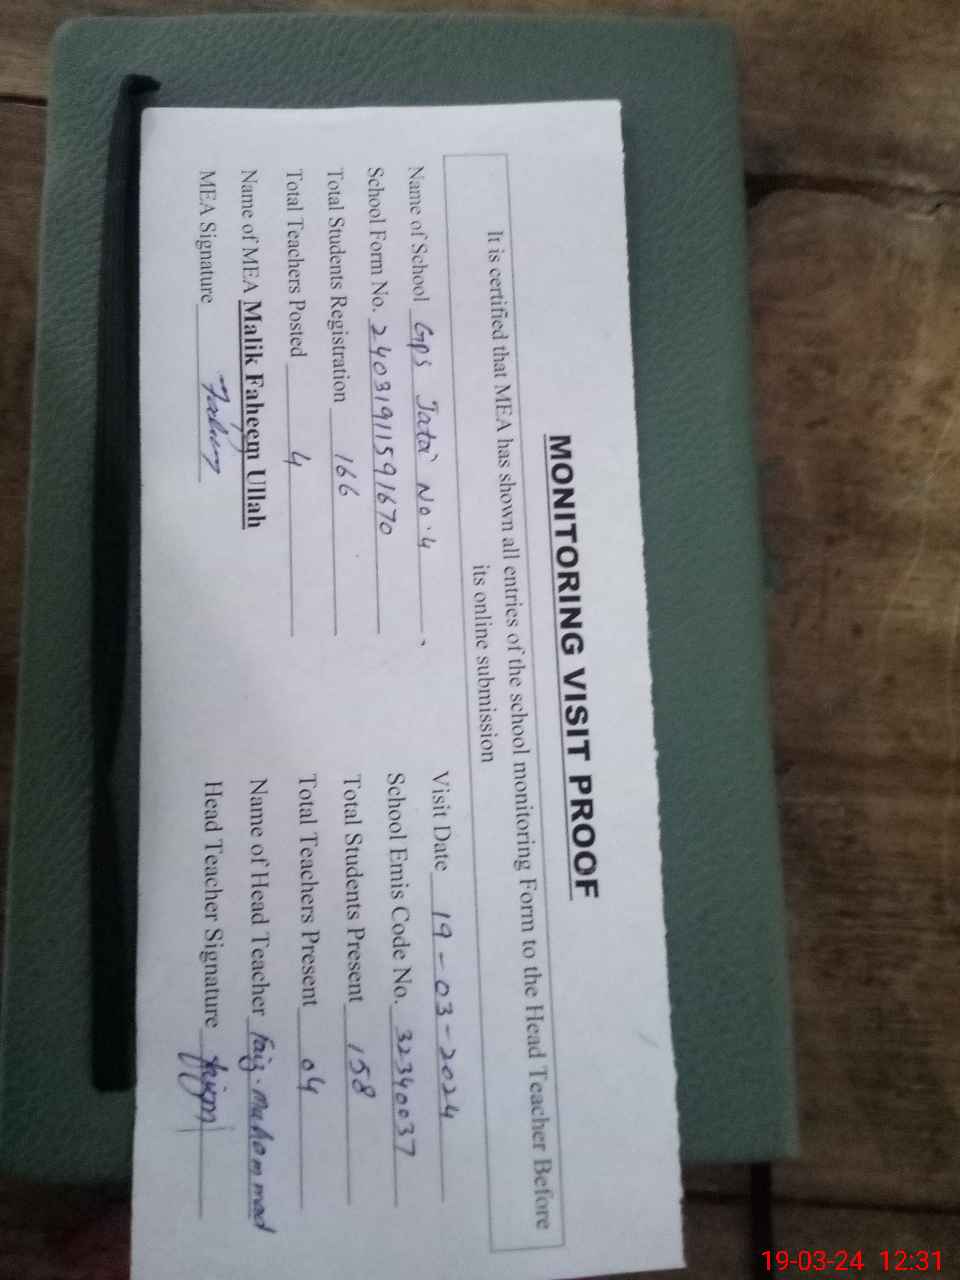 MONITORING VISIT PROOF
It is certified that MEA has shown all entries of the school monitoring Form to the Head Teacher Before
its online submission
Name of School GPS Jatoi No. 4 Visit Date 19-03-2024
School Form No. 24031911591670 School Emis Code No. 32340037
Total Students Registration 166 Total Students Present 158
Total Teachers Posted 4 Total Teachers Present 04
Name of MEA Malik Faheem Ullah Name of Head Teacher Faiz. Muhammad
MEA Signature Faheem Head Teacher Signature
19-03-24 12:31